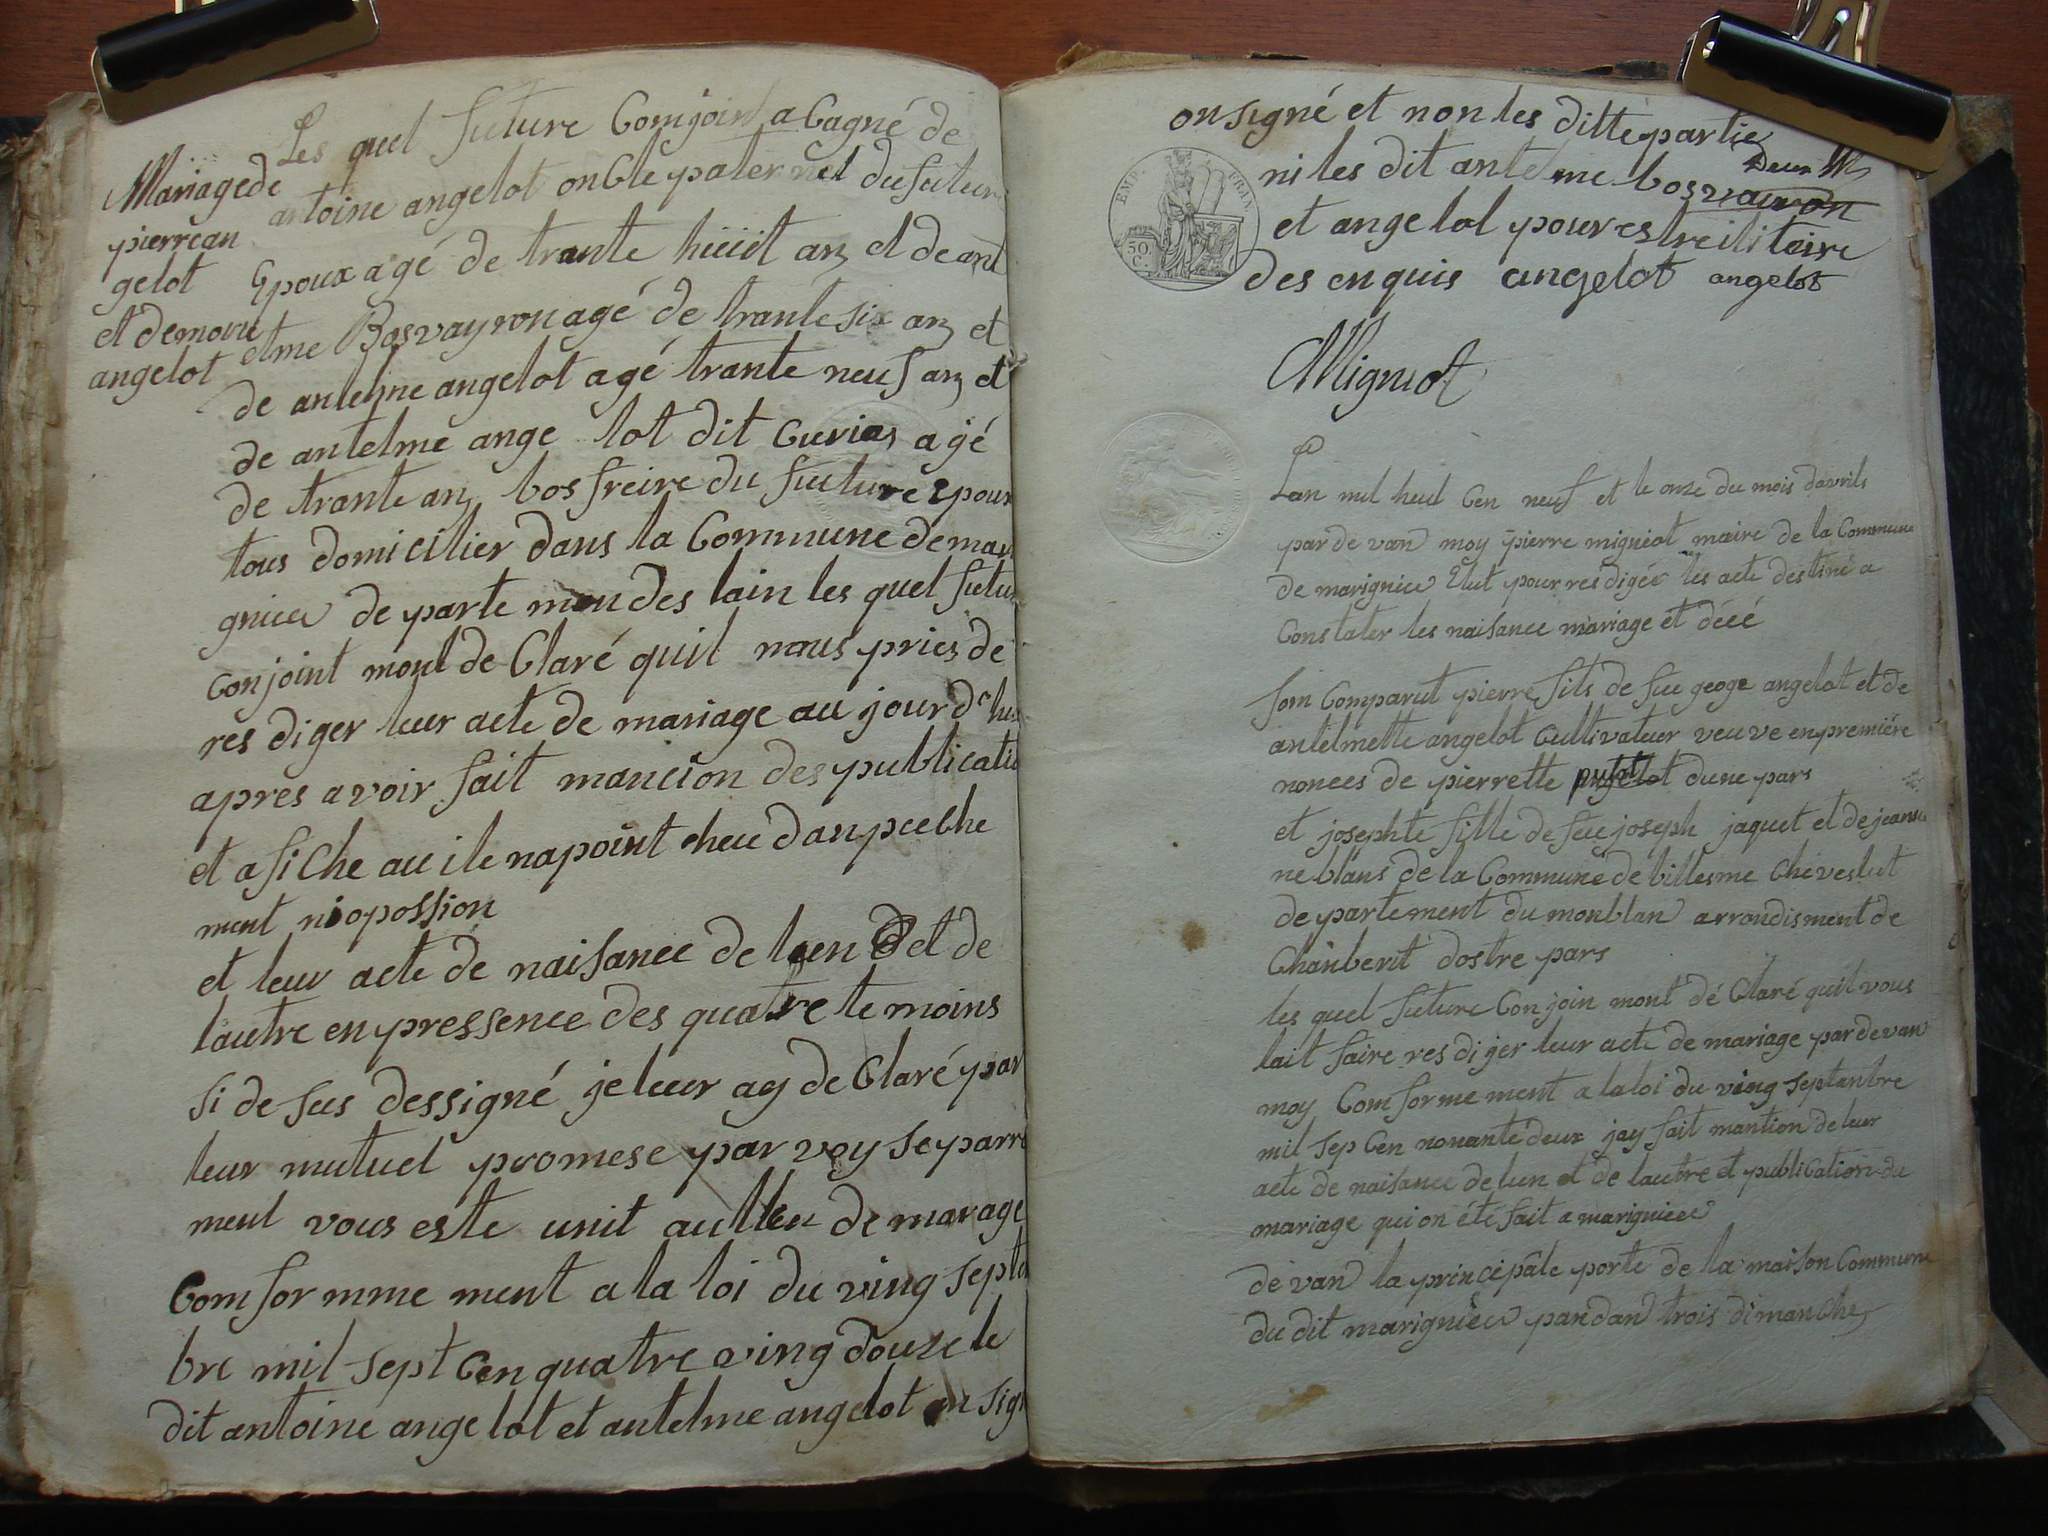 Mariage de
pierre an
gelot
et de marie
angelot
Les quel future Comjoint a Cagné de
antoine angelot onble paternel du future
Epoux agé de trante hüiit anz et de ant
elme Bosvayron agé de trante six anz et
de antelme angelot agé trante neuf anz et
de antelme ange lot dit Curias agé
de trante anz bos freire du future Epoux
tous domicilier dans la Commune de mari
gniee de parte men des lain les quel futur
conjoint mont de Claré quil nous pries de
res diger leur acte de mariage au jour d'hui
apres avoir fait mancion des publicatio
et afiche au ile na point eheu d'anpeche
ment ni opossion
et leur acte de naisance de luen et de
lautre en pressence des quatre te moins
si de sus dessigné je leur ay de Claré par
leur mutuel promese par voy se parre
ment vous este unit au lien de marage
Comfor mme ment a la loi du ving septe
bre mil sept Cen quatre ving douze le
dit antoine angelot et antelme angelot on sign
on signé et non les ditte partie
ni les dit antelme bosvairon
Deux M
et angelot pour estre ilitaire
des enquis angelot angelot
EMP. FRAN.
50 C.
Migniot
Lan mil heuit Cen neuf et le onze du mois davrils
par de van moy pierre migniot maire de la Commune
de marigniee Elut pour res digér les acte destiné a
Constater les naisance mariage et décé
som Comparut pierre fils de feu geoge angelot et de
antelmette angelot Cultivateur veuve en première
nonces de pierrette dune pars
et josephte fille de feu joseph jaquet et de jeanne
ne blans de la Commune de billesme Chevelut
de partement du monblan arrondisment de
Chanberit dostre pars
les quel future Con join mont dé Claré quil vous
lait faire res di ger leur acte de mariage par de van
moy Com forme ment a la loi du ving septanbre
mil sep Cen nonante deux jay fait mantion de leur
acte de naisance de lun et de lautre et publication du
mariage qui on été fait a marigniee
de van la principâle porte de la maison Commune
du dit marigniee pandan trois dimanche